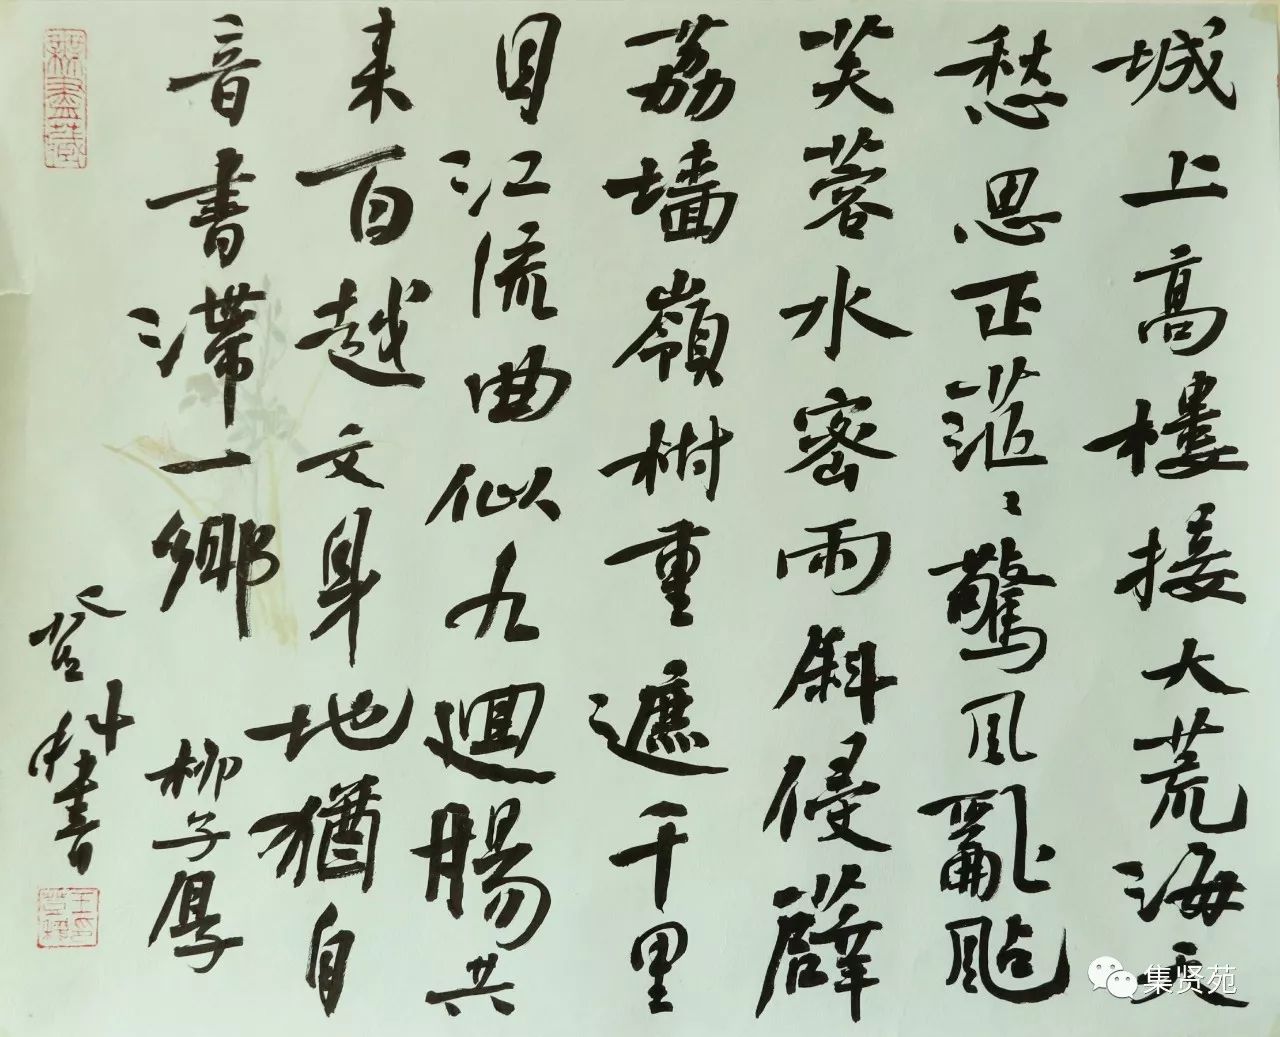 城上高樓接大荒海天
愁思正茫〻驚風亂颭
芙蓉水密雨斜侵薜
荔墙嶺樹重遮千里
目江流曲似九迴腸共
来百越文身地猶自
音書滯一鄉 柳子厚
登科書
無盡藏
集贤苑